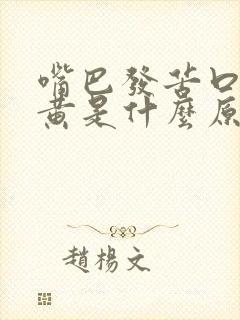 嘴巴發苦口
黃是什麼原
趙楊文